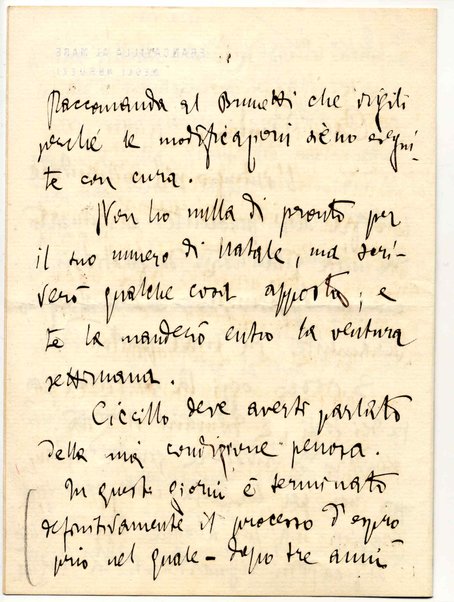 FRANCAVILLA AL MARE
NEGLI ABRUZZI
Raccomanda al Brunetti che vigili
perché le modificazioni siéno esegui-
te con cura.
Non ho nulla di pronto per
il suo numero di Natale, ma scri-
verò qualche cosa apposta; e
te la manderò entro la ventura
settimana.
Ciccillo deve averti parlato
della mia condizione penosa.
In questi giorni è terminato
definitivamente il processo d'espro
prio nel quale – dopo tre anni